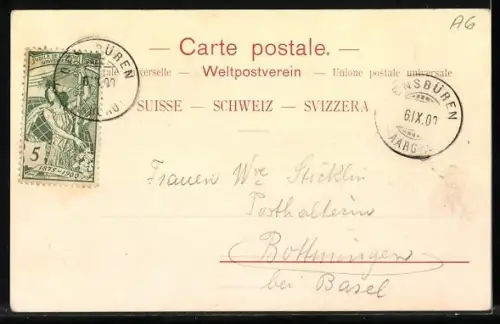 AG
Carte postale.
Weltpostverein — Union postale universelle
SUISSE — SCHWEIZ — SVIZZERA
JUBILÉ DE
5
1875-1900
NSBÜREN
6.IX.00
AARG
Frauen Wwe Stöcklin
Posthalterin
Bottmingen
bei Basel